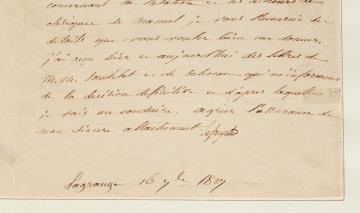 concernant la relation
obsèques de manuel je vous remercie des
details que vous voulez bien me donner
j'ai reçu hier et aujourd'hui des lettres de
M.M. et de Schonen qui m'informent
de la décision définitive et d'après laquelle
je vais me conduire. agréez l'assurance de
mon sincère attachement
Lagrange 16 7bre 1827